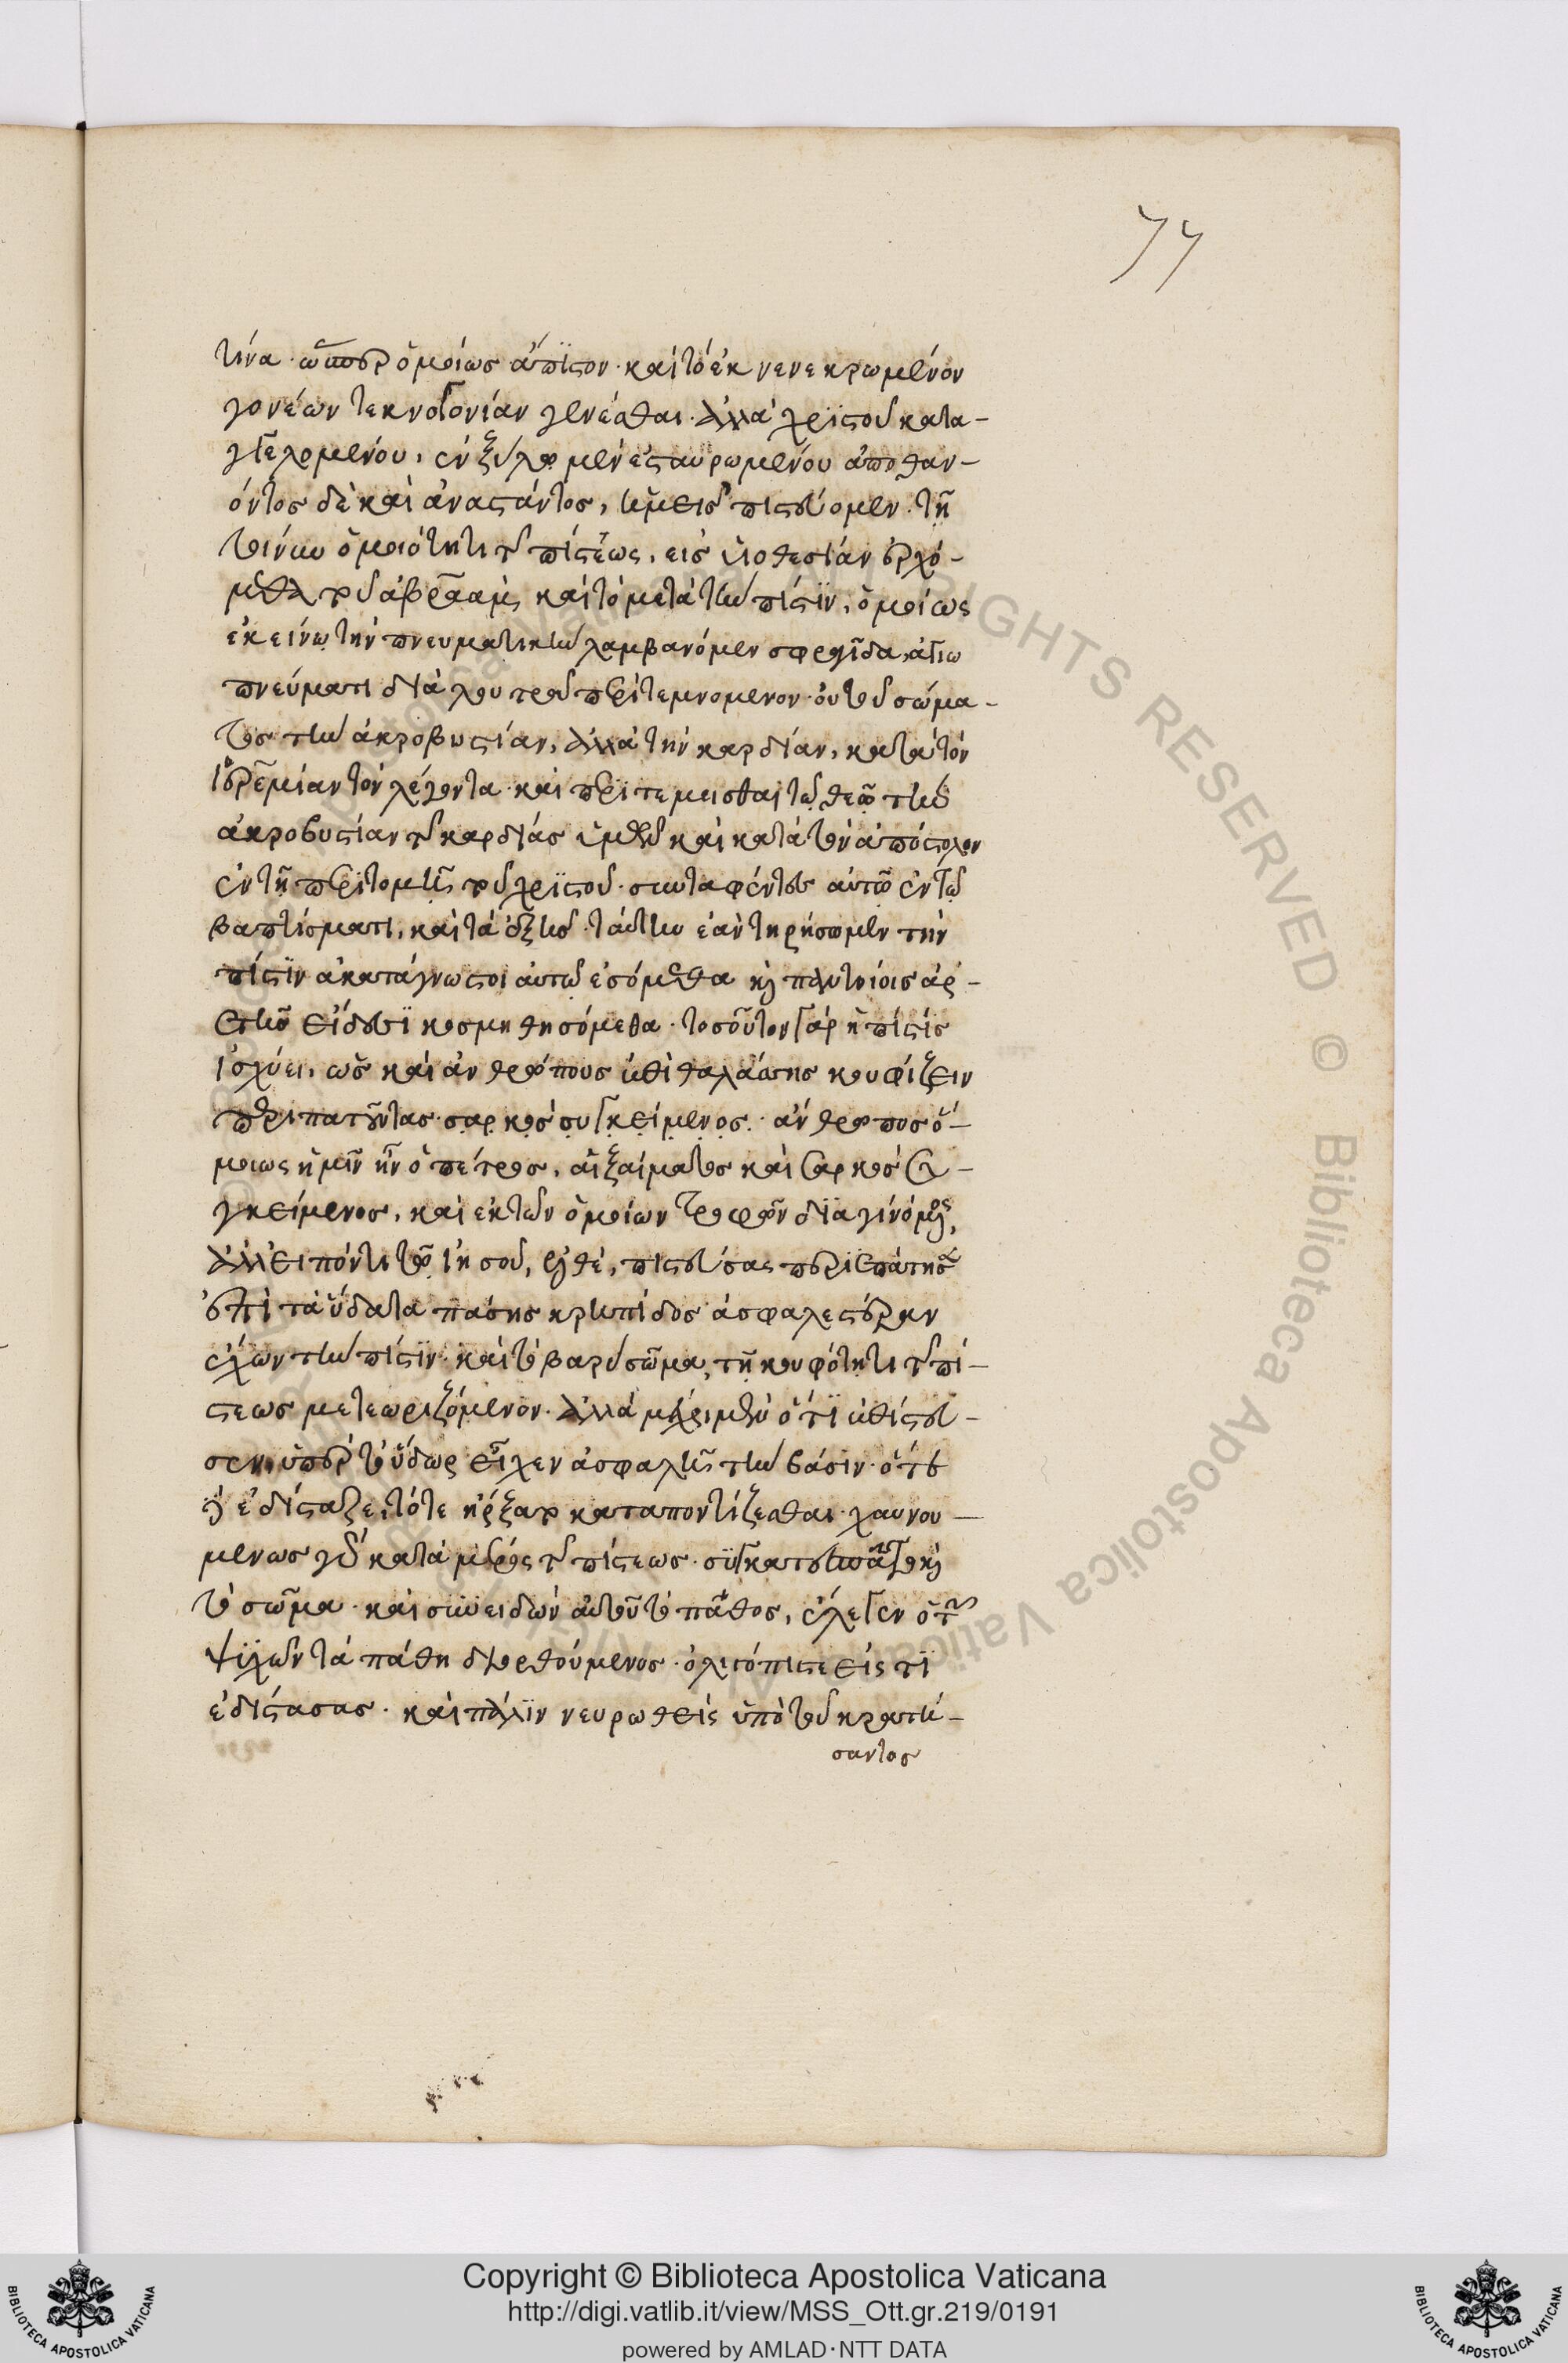 77
τινα. ὥσπερ ὁμοίως ἄπϊστον. καὶ τὸ ἐκ νενεκρωμένον
γονέων τεκνογονίαν γενέσθαι. ἀλλὰ χρϊστοῦ κατα-
γγελομένου, ἐν ξύλῳ μὲν ἐσταυρωμένου ἀποθαν-
όντος δὲ καὶ ἀναστάντος, ἡμεῖς πιστεύομεν. τῇ
τοίνυν ὁμοιότητι τῆς πίστεως, εἰς υἱοθεσίαν ἐρχό-
μεθα τοῦ ἀβραὰμ, καὶ τὸ μετὰ τὴν πίστϊν, ὁμοίως
ἐκείνῳ τὴν πνευματικὴν λαμβανόμεν σφραγῖδα, ἁγίω
πνεύματι διὰ λουτροῦ περιτεμνομενον. οὐ τοῦ σώμα-
τος τὴν ἀκροβυστίαν, ἀλλὰ τὴν καρδίαν, κατὰ τὸν
ἱερεμίαν τὸν λέγοντα. καὶ περιτεμεισθαι τῷ θεῷ τὴν
ἀκροβυστίαν τῆς καρδίας ὑμῶν καὶ κατὰ τὸν ἀπόστολον
ἐν τῇ περιτομῇ τοῦ χρϊστοῦ. συνταφέντες αὐτῷ ἐν τῷ
βαπτίσματι, καὶ τὰ ἑξῆς. ταύτην ἐὰν τηρήσωμεν τὴν
πίστϊν ἀκατάγνωστοι αὐτῷ ἐσόμεθα καὶ παντοίοις ἀρ-
ετῶν εἴδεσϊ κοσμηθησόμεθα. τοσοῦτον γὰρ ἡ πίστϊς
ἰσχύει, ὡς καὶ ἀνθρώπους ἐπὶ θαλάσσης κουφίζειν
περιπατοῦντας. σαρκὸς συγκείμενος. ἄνθρωπος ὁ-
μοιως ἡμῖν ἦν ὁ πέτρος, ἀἱξαίματος καὶ σαρκὸς συ-
γκείμενος, καὶ ἐκ τῶν ὁμοίων τροφῶν διαγινόμενος,
ἀλλ' εἰπόντι τῷ ἰησοῦ, ἐλθὲ, πιστεύσας περιεπάτησεν
ἐπὶ τὰ ὕδατα πάσης κρηπίδος ἀσφαλεστέραν
ἔχων τὴν πίστϊν. καὶ τὸ βαρὺ σῶμα, τῇ κουφότητι τῆς πί-
στεως μετεωριζόμενον. ἀλλὰ μέχρι μὲν ὅτϊ ἐπίστευ-
σεν, ὑπὲρ τὸ ὕδωρ εἶχεν ἀσφαλῆ τὴν βάσιν. ὅτε
δὲ ἐδίσταζε, τότε ἤρξατο καταποντίζεσθαι. χαυνου-
μενως γὰρ κατὰ μέρος τῆς πίστεως. συγκατεσπᾶτο καὶ
τὸ σῶμα. καὶ συνειδὼν αὐτοῦ τὸ πάθος, ἔλεγεν ὁ τῶν
ψϊχῶν τὰ πάθη διορθούμενος. ὀλιγόπιστε εἰς τὶ
ἐδίστασας. καὶ πάλϊν νευρωθεὶς ὑπὸ τοῦ κρατή-
σαντος
Copyright © Biblioteca Apostolica Vaticana
http://digi.vatlib.it/view/MSS_Ott.gr.219/0191
powered by AMLAD·NTT DATA